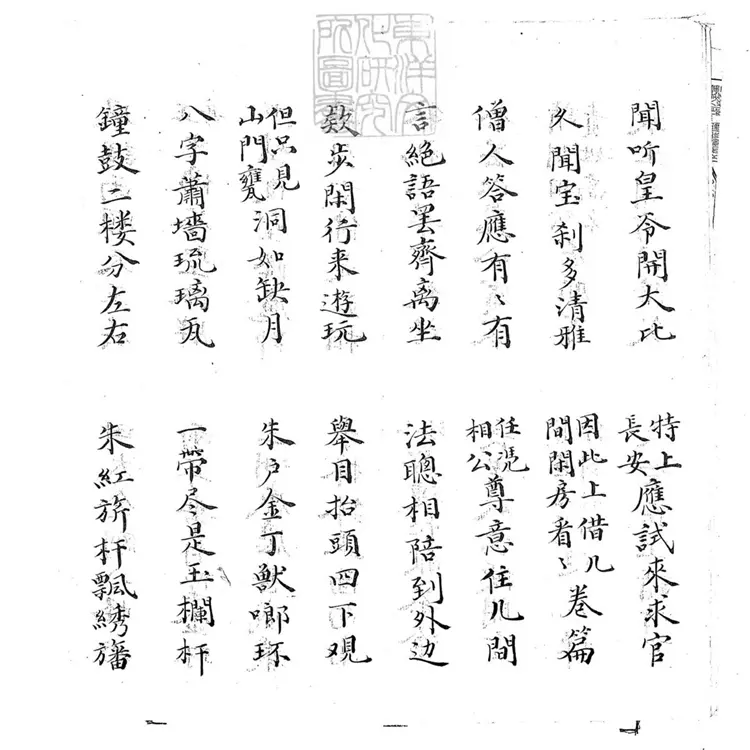 聞听皇令開大比
特上長安應試來求官
久聞宝刹多清雅
因此上借几間閑房看〻卷篇
僧人答應有〻有
任凴相公尊意住几間
言絶語罢齊离坐
法聰相陪到外边
欵步閑行来遊玩
舉目抬頭四下观
但只見山門甕洞如缺月
朱户金丁獣啣环
八字蕭墻琉璃瓦
一帶尽是玉欄杆
鐘鼓二楼分左右
朱紅旂杆飄綉旛